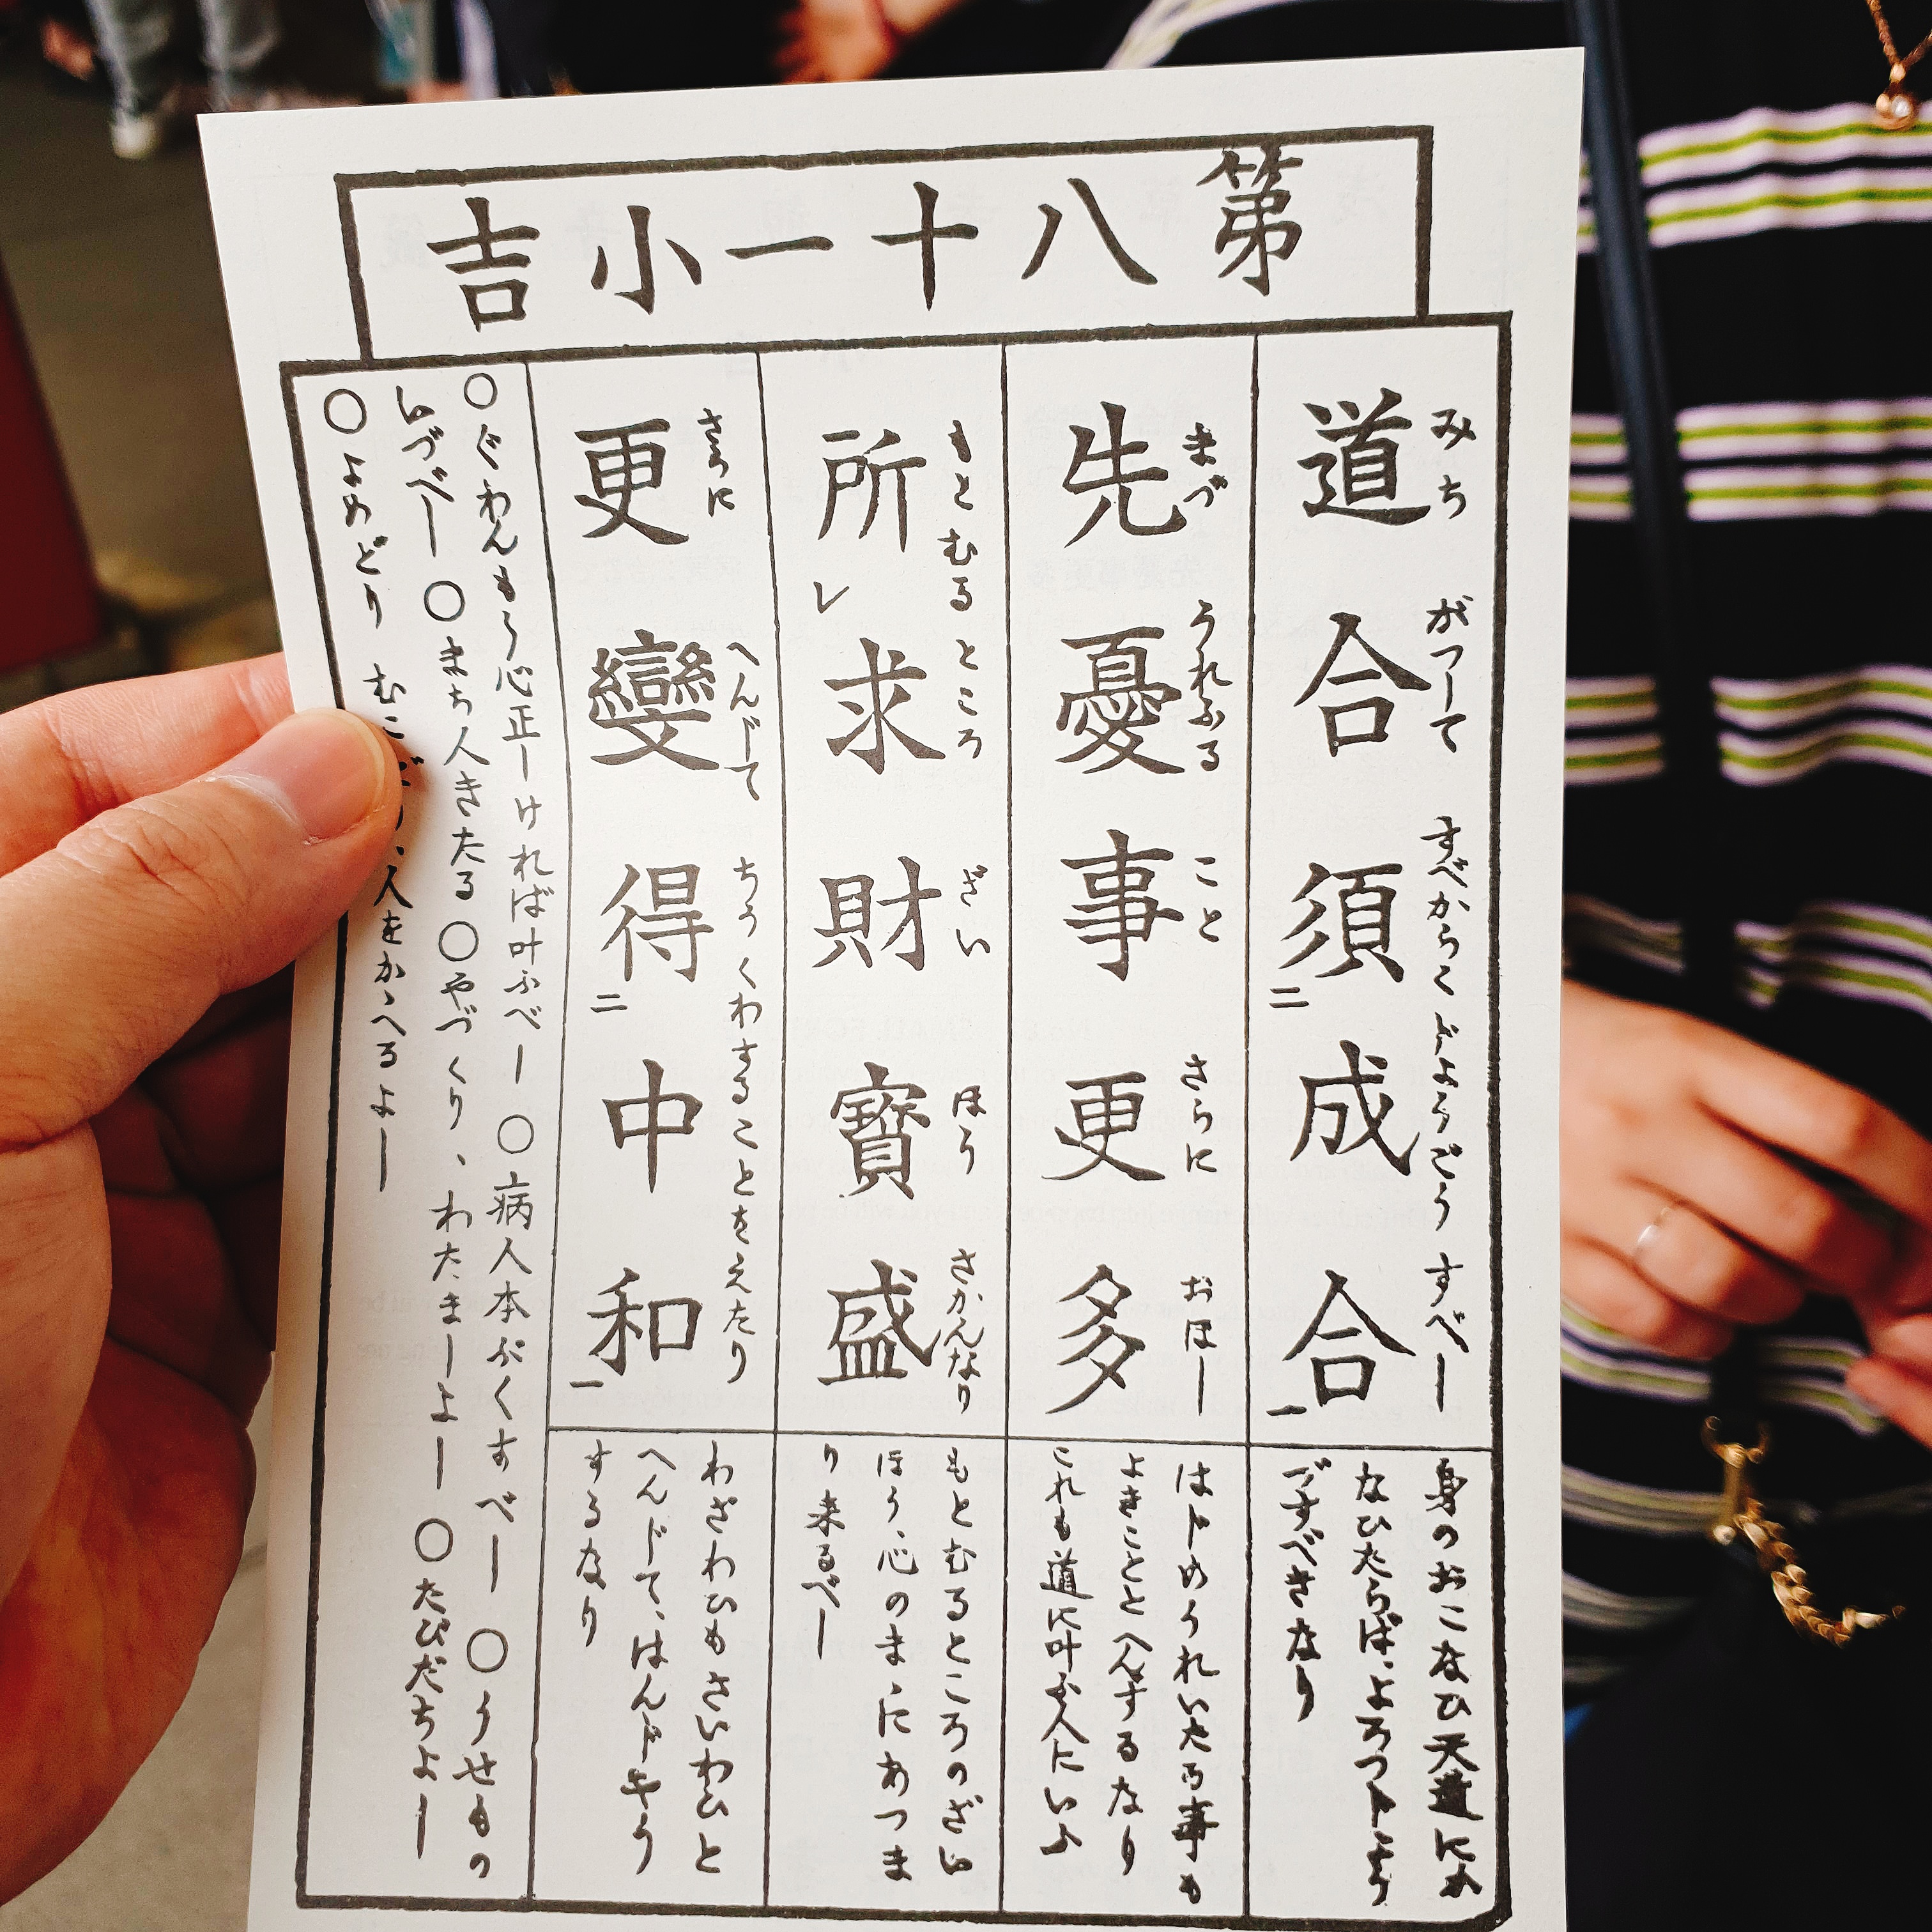 第八十一小吉
みち がつして すべからくじようごう すべし
道合須二成合一
まづ うれふる こと さらに おほし
先憂事更多
もとむるところ ざい ほう さかんなり
所レ求財寶盛
さらに へんじて ちうくわすることをえたり
更變得二中和一
身のおこなひ天道にか
なひたらば、よろづじようじ
ごすべきなり
はじめうれいたる事も
よきこととへんずるなり
これも道に叶ふ人にいふ
もとむるところのざい
ほう、心のまゝにあつま
り来るべし
わざわひもさいわひと
へんじて、はんじやう
するなり
○ぐわんもう心正しければ叶ふべし ○病人本ぶくすべし ○うせもの
いづべし ○まち人きたる ○やづくり、わたましよし ○たびだちよし
○よめどり むこ 人をかゝへるよし